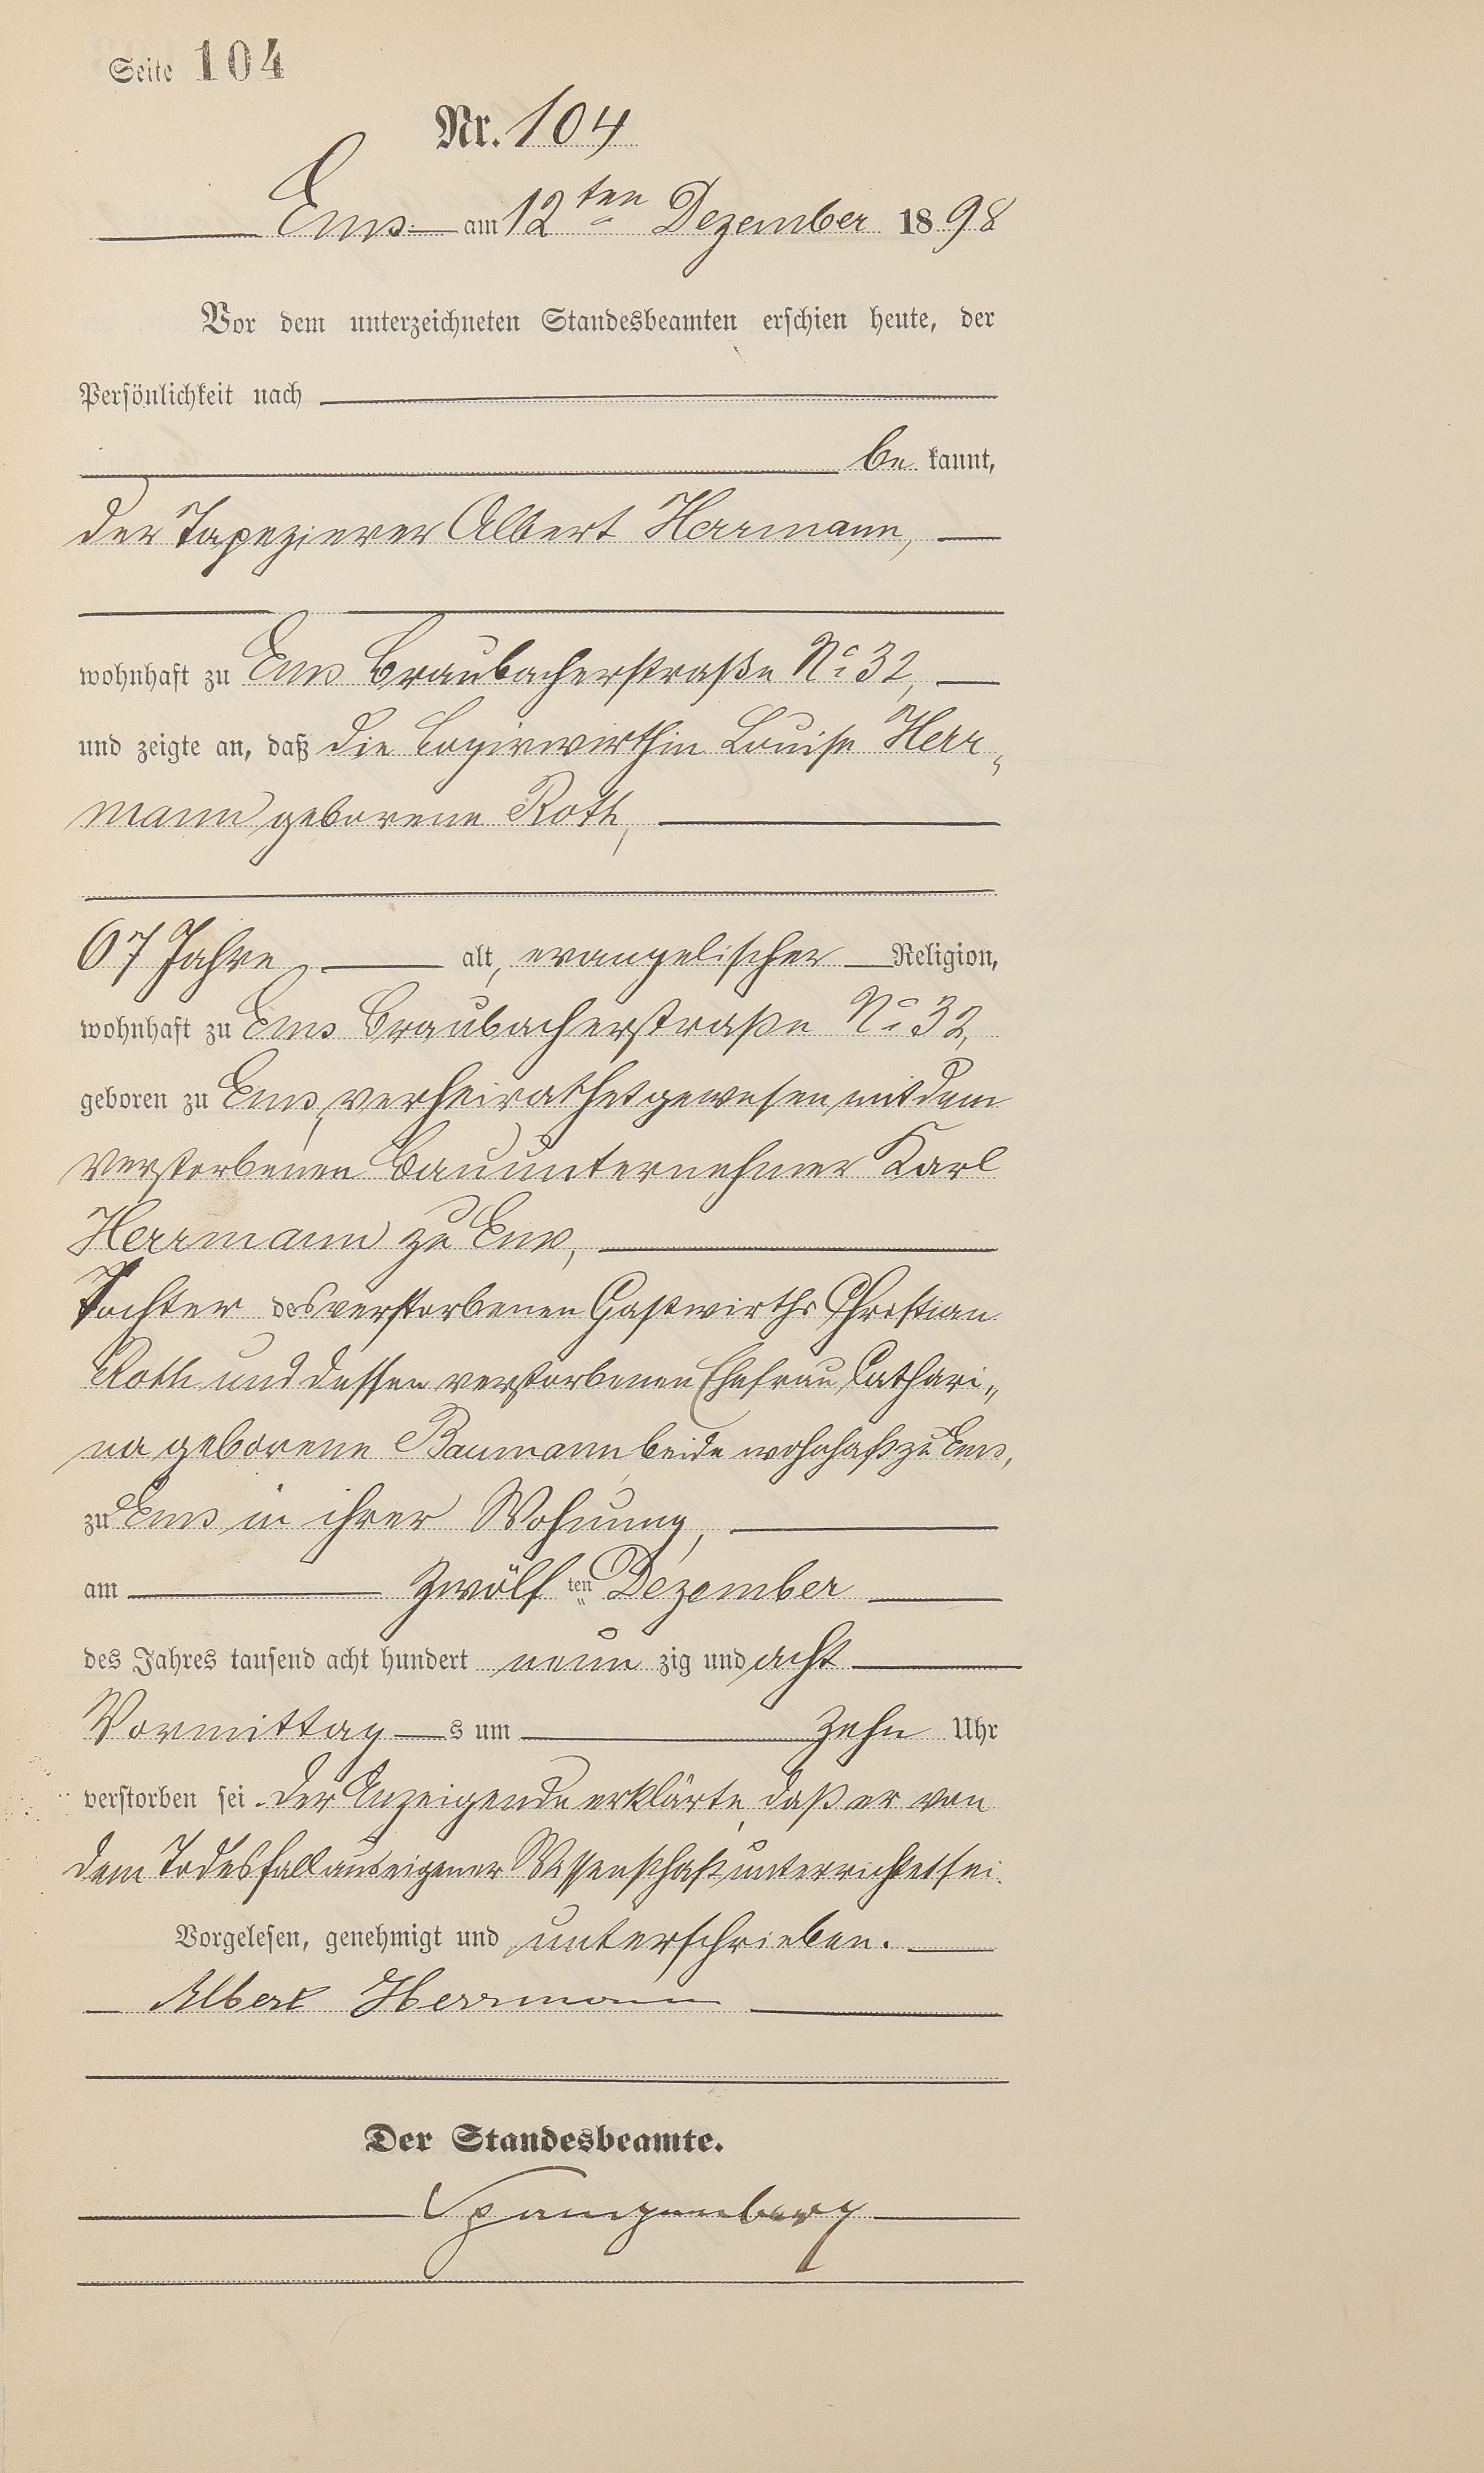 Seite 104
Nr. 104
Ems am 12ten Dezember 1898
Vor dem unterzeichneten Standesbeamten erschien heute, der
Persönlichkeit nach
be kannt,
der Tapezierer Albert Herrmann,
wohnhaft zu Ems Braubacherstraße No 32,
und zeigte an, daß die Logirwirthin Louise Herr„
mann geborene Roth,
67 Jahre alt, evangelischer Religion,
wohnhaft zu Ems Braubacherstraße No 32,
geboren zu Ems, verheirathet gewesen mit dem
verstorbenen Bauunternehmer Karl
Herrmann zu Ems,
Tochter des verstorbenen Gastwirths Christian
Roth und dessen verstorbenen Ehefrau Cathari„
na geborene Baumann beide wohnhaft zu Ems,
zu Ems in ihrer Wohnung,
am zwölf ten Dezember
des Jahres tausend acht hundert neun zig und acht
Vormittag s um zehn Uhr
verstorben sei. Der Anzeigende erklärte, daß er von
dem Todesfall aus eigener Wissenschaft unterrichtet sei.
Vorgelesen, genehmigt und unterschrieben.
Albert Herrmann
Der Standesbeamte.
Spangenberg